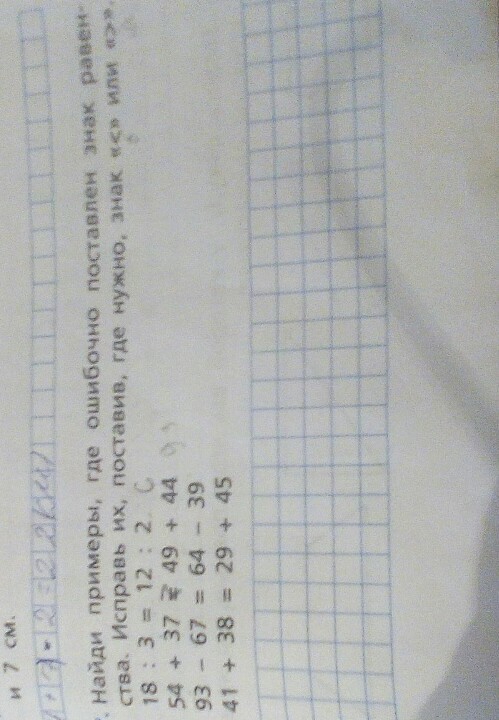 и 7 см.
Найди примеры, где ошибочно поставлен знак равен-
ства. Исправь их, поставив, где нужно, знак «<» или «>».
18 : 3 = 12 : 2 6
54 + 37 = 49 + 44 93
93 − 67 = 64 − 39
41 + 38 = 29 + 45